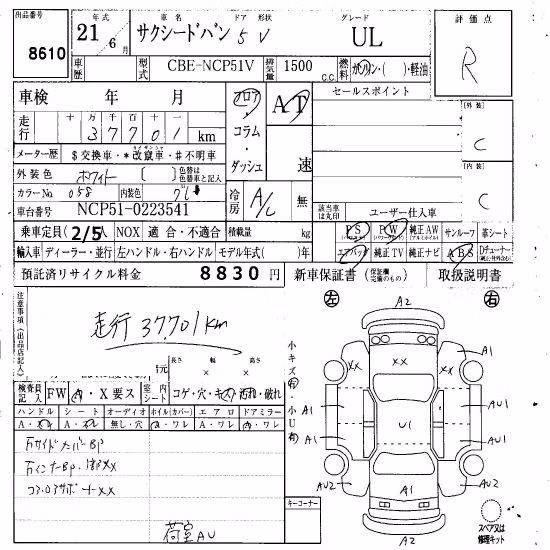 出品番号 8610
年式 21 6月
車名 サクシードバン
ドア 形状 5 V
グレード UL
評価点 R
車歴
型式 CBE-NCP51V
排気量 1500 c.c.
燃料 ガソリン・( )・軽油
車検 年 月
フロア・コラム・ダッシュ
AT 速
セールスポイント
[外装] C
走行 十万 万 千 百 十 一
3 7 7 0 1 km
メーター歴 $交換車・*改竄車・#不明車
[内装] C
外装色 ホワイト [ ] 色替は色替車と記入
カラーNo. 058 内装色 グレー
冷房 A/C 無
該当車は丸印
ユーザー仕入車
車台番号 NCP51-0223541
乗車定員 (2/5) NOX 適合・不適合 積載量 kg
PS PW 純正AW サンルーフ 革シート
輸入車 ディーラー・並行 左ハンドル・右ハンドル モデル年式( 年)
エアバッグ 純正TV 純正ナビ ABS Dチューナー
預託済リサイクル料金 8830円
新車保証書 (保証欄完備のもの) 取扱説明書
注意事項(出品店記入)
走行 37,701km
長さ 幅 高さ
元 × ×
左 右
A2
小キズ
小U
検査員記入 FW 内・X要ス 室内シート コゲ・穴・キズ 汚れ・破れ
ハンドル シート オーディオ ホイル(カバー) エアロ ドアミラー
A・スレ A・スレ 無し・穴 A・ワレ A・ワレ A・ワレ
XX XX A1
A1 U1 AU1
A1 AU1
AU2 A1 AU2
A2
荷室AU
キーコーナー
スペア又は修理キット